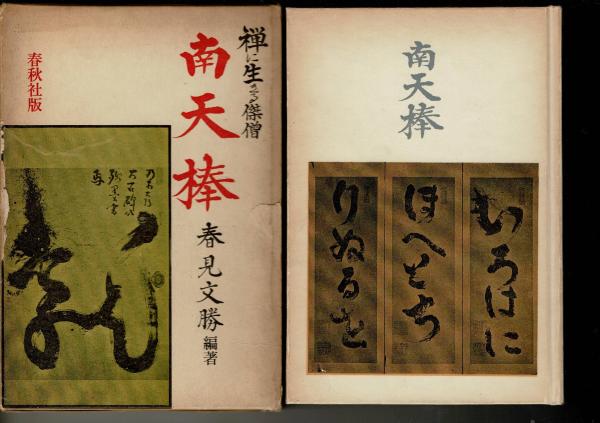 禅に生きる傑僧
南天棒
春見文勝 編著
春秋社版
南天棒
いろはに
ほへとち
りぬるを